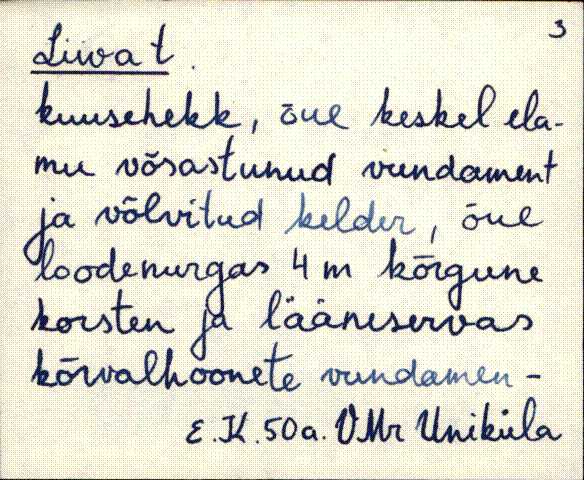 3
Liiva t.
kuusehekk, õue keskel ela-
mu võsastunud vundament
ja võlvitud kelder, õue
loodenurgas 4 m kõrgune
korsten ja lääneservas
kõrvalhoonete vundamen-
E.K. 50a. VMr Uniküla